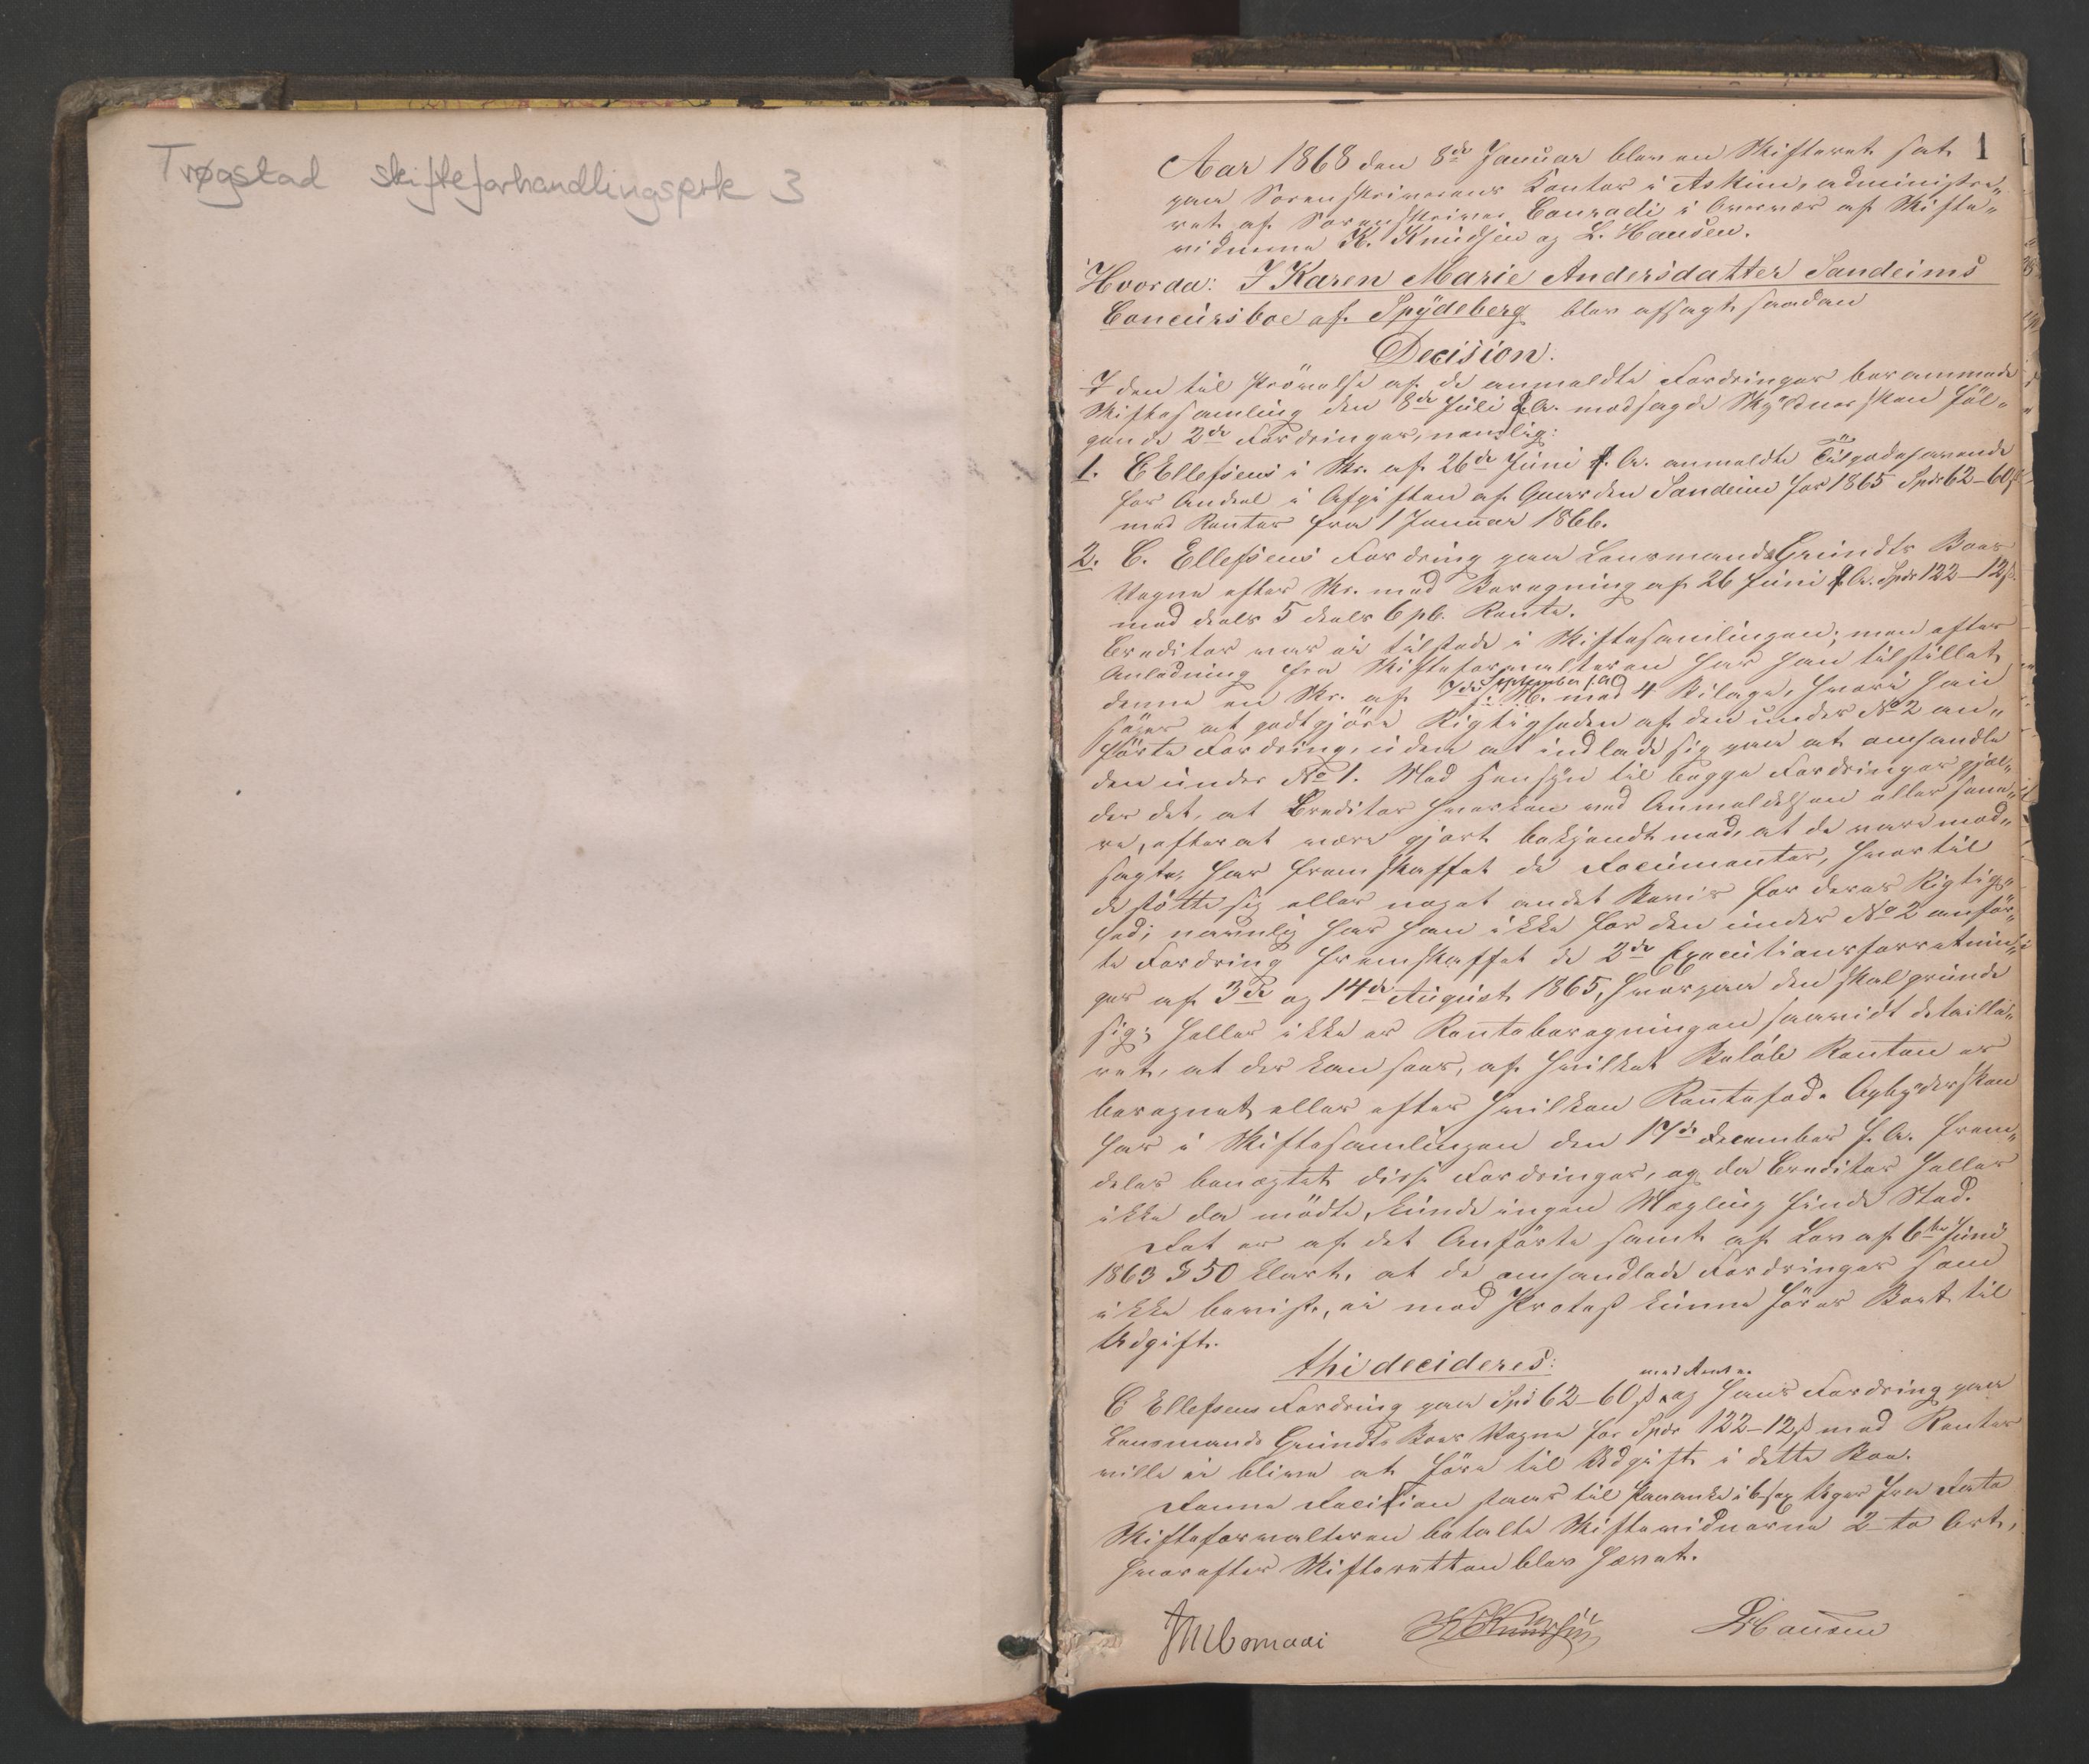 Trøgstad skifteforhandlingsprk 3
1
Aar 1868 den 8de Januar blev en Skifteret sat
paa Sorenskriverens Kontor i Askim, administre„
ret af Sorenskriver Conradi i Overvær af Skifte„
vidnerne K. Knudsen og L. Hansen.
Hvorda: I Karen Marie Andersdatter Sandeims
Concursboe af Spydeberg blev afsagt saadan
Decision:
I den til Prövelse af de anmeldte Fordringer berammede
Skiftesamling den 8de Juli f. A. modsagde Skyldnersken föl„
gende 2de Fordringer, nemlig:
1. C Ellefsens i Skr. af 26de Juni f. A. anmeldte Tilgodehavende
for Andeel i Afgiften af Gaarden Sandeim for 1865 Spdr 62–60 ß
med Renter fra 1 Januar 1866.
2. C. Ellefsens Fordring paa Lensmand Grundts Boes
Vegne efter Skr. med Beregning af 26 Juni f. A. Spdr 122–12 ß.
med deels 5 deels 6 pC. Rente.
Creditor var ei tilstede i Skiftesamlingen; men efter
Anledning fra Skifteforvalteren har han tilstillet
denne en Skr. af 7de September f. A. med 4 Bilage, hvori han
söger at godtgjöre Rigtigheden af den under No 2 an„
förte Fordring, uden at indlade sig paa at omhandle
den under No 1. Med Hensyn til begge Fordringer gjæl„
der det, at Creditor hverken ved Anmeldelsen eller sene„
re, efter at være gjort bekjendt med, at de vare mod„
sagte, har fremskaffet de Documenter, hvortil
de stötte sig eller noget andet Beviis for deres Rigtig„
hed; navnlig har han ikke for den under No 2 anför„
te Fordring fremskaffet de 2de Executionsforretnin„
ger af 3de og 14de August 1865, hvorpaa den skal grunde
sig; heller ikke er Renteberegningen saavidt detaille„
ret, at der kan sees, af hvilket Belöb Renten er
beregnet eller efter hvilken Rentefod. Opbydersken
har i Skiftesamlingen den 17de December f. A. frem„
deles benegtet disse Fordringer, og da Creditor heller
ikke da mödte, kunde ingen Mægling finde Sted.
Det er af det Anförte samt af Lov af 6te Juni
1863 § 50 klart, at de omhandlede Fordringer som
ikke beviste, ei mod Protest kunne föres Boet til
Udgift.
thi decideres:
C Ellefsens Fordring paa Spd 62–60 ß med Renter og hans Fordring paa
Lensmand Grundts Boes Vegne for Spdr 122–12 ß med Renter
ville ei blive at före til Udgift i dette Boe.
Denne Decision staar til Paaanke i 6 sex Uger fra Dato
Skifteforvalteren betalte Skiftevidnerne 2 to Ort,
hvorefter Skifteretten blev hævet.
Conradi K Knudsen L Hansen